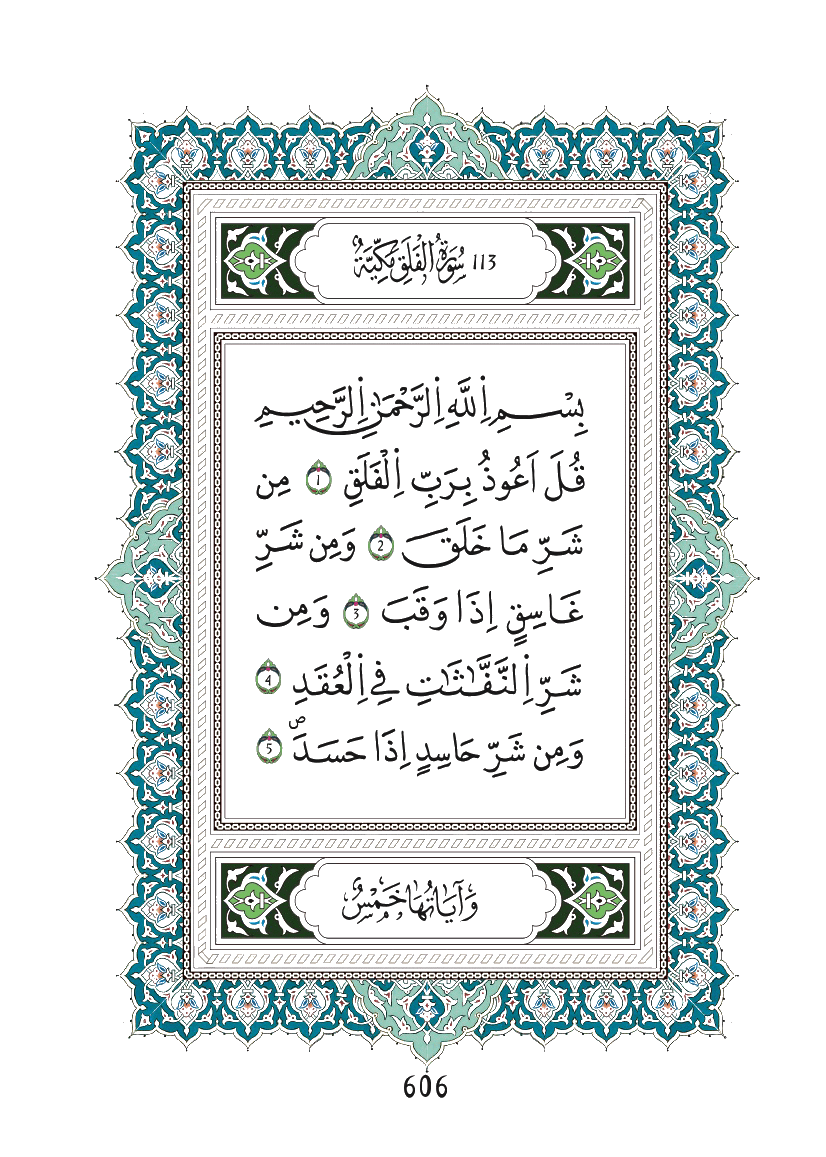 113 سُورَةُ الْفَلَقِ مَكِّيَّةٌ
بِسْمِ اِ۬للَّهِ اِ۬لرَّحْمَٰنِ اِ۬لرَّحِيمِ
قُلَ اَعُوذُ بِرَبِّ اِ۬لْفَلَقِ 1 مِن
شَرِّ مَا خَلَقَ 2 وَمِن شَرِّ
غَاسِقٍ اِذَا وَقَبَ 3 وَمِن
شَرِّ اِ۬لنَّفَّٰثَٰتِ فِے اِ۬لْعُقَدِ 4
وَمِن شَرِّ حَاسِدٍ اِذَا حَسَدَۖ 5
وَآيَاتُهَا خَمْسٌ
606